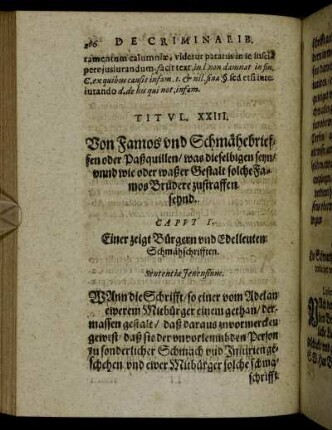 206 DE CRIMINARIB.
ramentum calumniæ, videtur paratus in se susci-
pere jusiurandum, facit text. in l. non damnat in fin.
C. ex quibus causis infam. & nil. sed etsi in te-
iurando d. de his qui not. infam.
TITVL. XXIII.
Von Famos vnd Schmähebrief-
fen oder Paßquillen / was dieselbigen seyn /
vnnd wie oder waßer Gestalt solche Fa-
mos Brüdere zustraffen
seynd.
CAPVT I.
Einer zeigt Bürgern vnd Edelleuten
Schmähschrifften.
Sententia Jenensium.
WAnn die Schrifft / so einer vom Adel an
ewerem Mitbürger einem gethan / der-
massen gestalt / daß daraus zuvormercken
gewest / daß sie der vnvorleumbden Person
zu sonderlicher Schmach vnd Injurien ge-
schehen, vnd ewer Mitbürger solche schmä-
schrifft